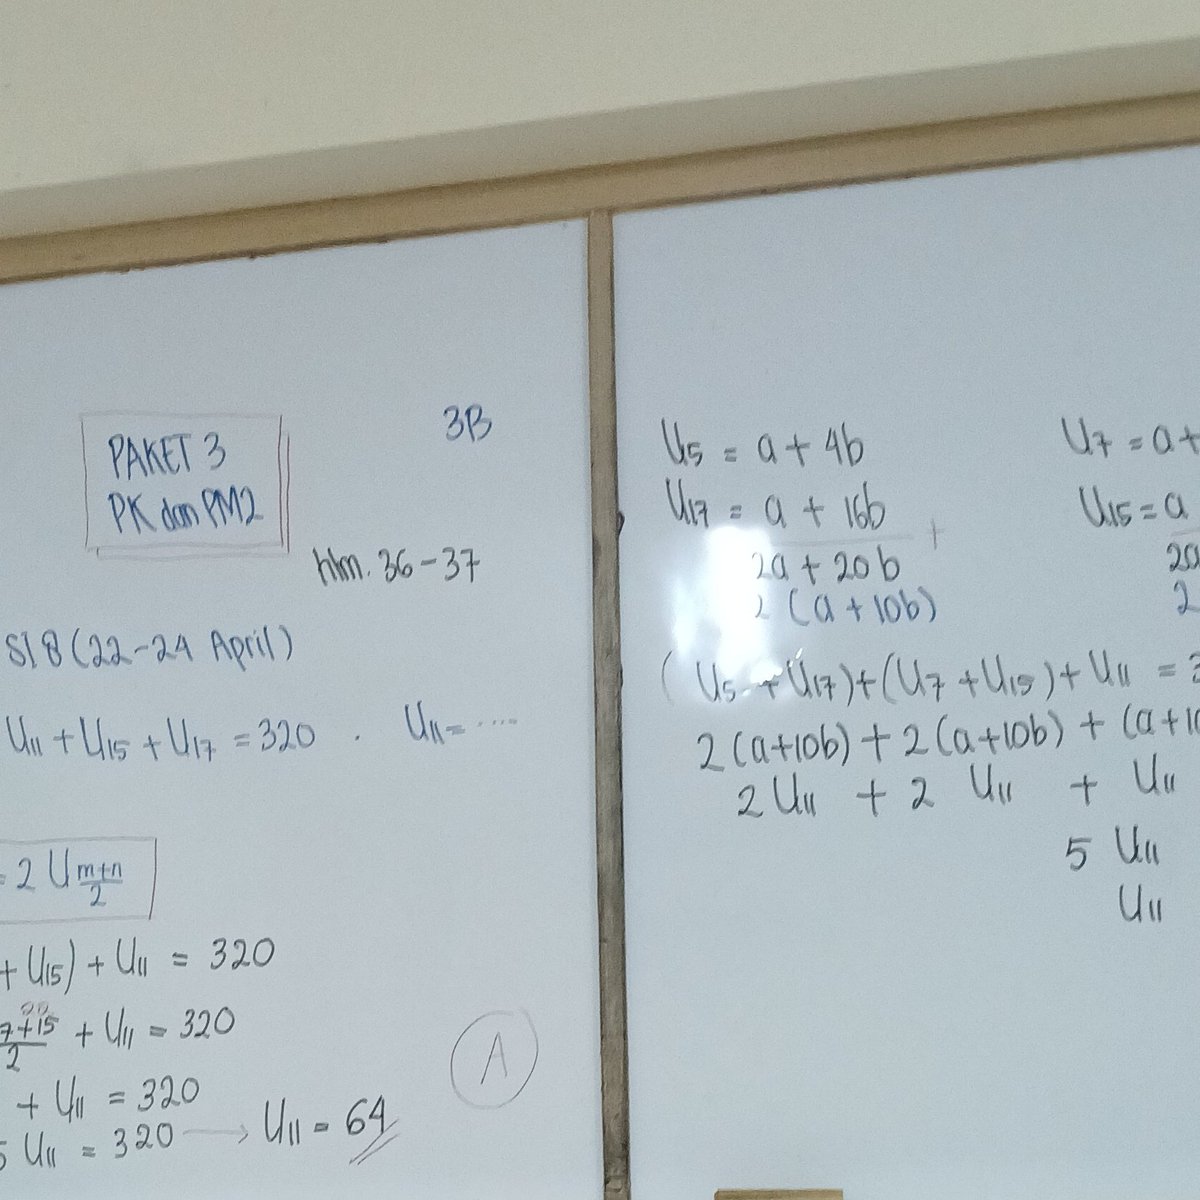 PAKET 3
PK dan PM2
3B
hlm. 36-37
S18 (22-24 April)
U11 + U15 + U17 = 320 . U11 = ....
= 2 U m+n/2
+ U15) + U11 = 320
7+15/2 + U11 = 320
+ U11 = 320
5 U11 = 320 → U11 = 64
A
U5 = a + 4b
U17 = a + 16b
+
2a + 20b
2 (a + 10b)
U7 = a +
U15 = a
2a
2
(U5 + U17) + (U7 + U15) + U11 = 3
2(a+10b) + 2(a+10b) + (a+10
2 U11 + 2 U11 + U11
5 U11
U11